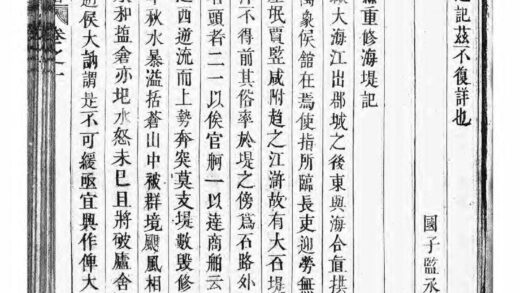 記茲不復詳也
國子監丞
重修海堤記
大海江出郡城之後東與海合直拱
蜀象候舘在焉使指所臨長吏迎勞無
氓賈豎咸附趨之江滸故有大石堤
不得前其俗率於堤之傍爲石路外
頭者二一以俟官舸一以達商舶云
西逆流而上勢奔突莫支堤數毁修
秋水暴溢括蒼山中被群境颶風相
和搕倉亦圯水怒未已且將破廬舍
侯大訥謂是不可緩亟宜興作俾大
卷之十